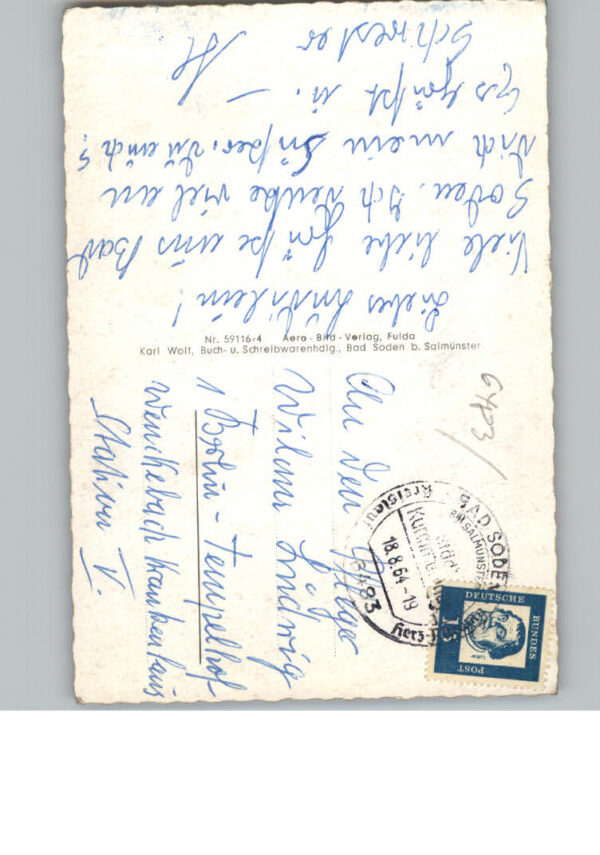 Liebes Ludilein!
Viele liebe Grüße aus Bad
Soden. Ich denke viel an
Dich mein Süßer. Du auch?
Es grüßt u. –
Schwester
Nr. 59116/4 Aero-Bild-Verlag, Fulda
Karl Wolf, Buch- u. Schreibwarenhdlg., Bad Soden b. Salmünster
An den Pfleger
Wilms Ludwig
1 Berlin - Tempelhof
Wenckebach Krankenhaus
Station V.
6483
BAD SODEN
BEI SALMÜNSTER
18.8.64-19
6483
Herz-
DEUTSCHE
BUNDES
POST
15
Luther